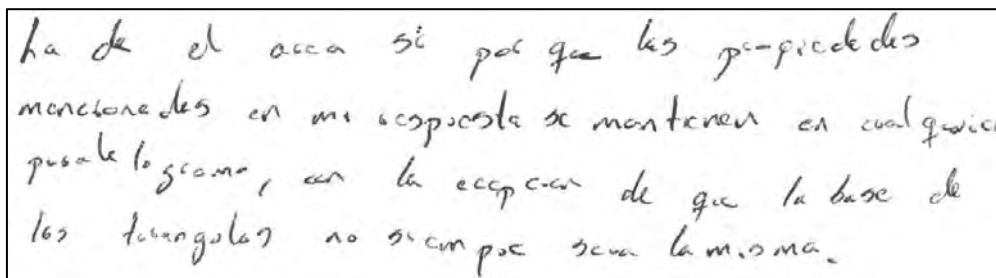 La de el area si por que las propiedades
mencionadas en mi respuesta se mantienen en cualquier
paralelogramo, con la ecepcion de que la base de
los triangulos no siempre sera la misma.